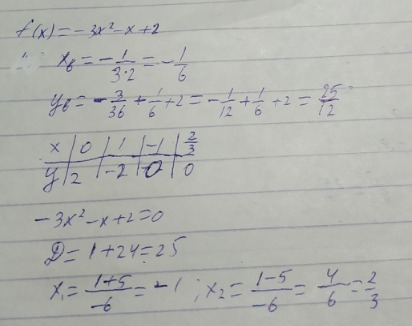 f(x)=-3x²-x+2
x₆=-1/(3·2)=-1/6
y₆=-3/36+1/6+2=-1/12+1/6+2=25/12
x | 0 | 1 | -1 | 2/3
y | 2 | -2 | 0 | 0
-3x²-x+2=0
D=1+24=25
x₁=(1+5)/-6=-1; x₂=(1-5)/-6=4/6=2/3